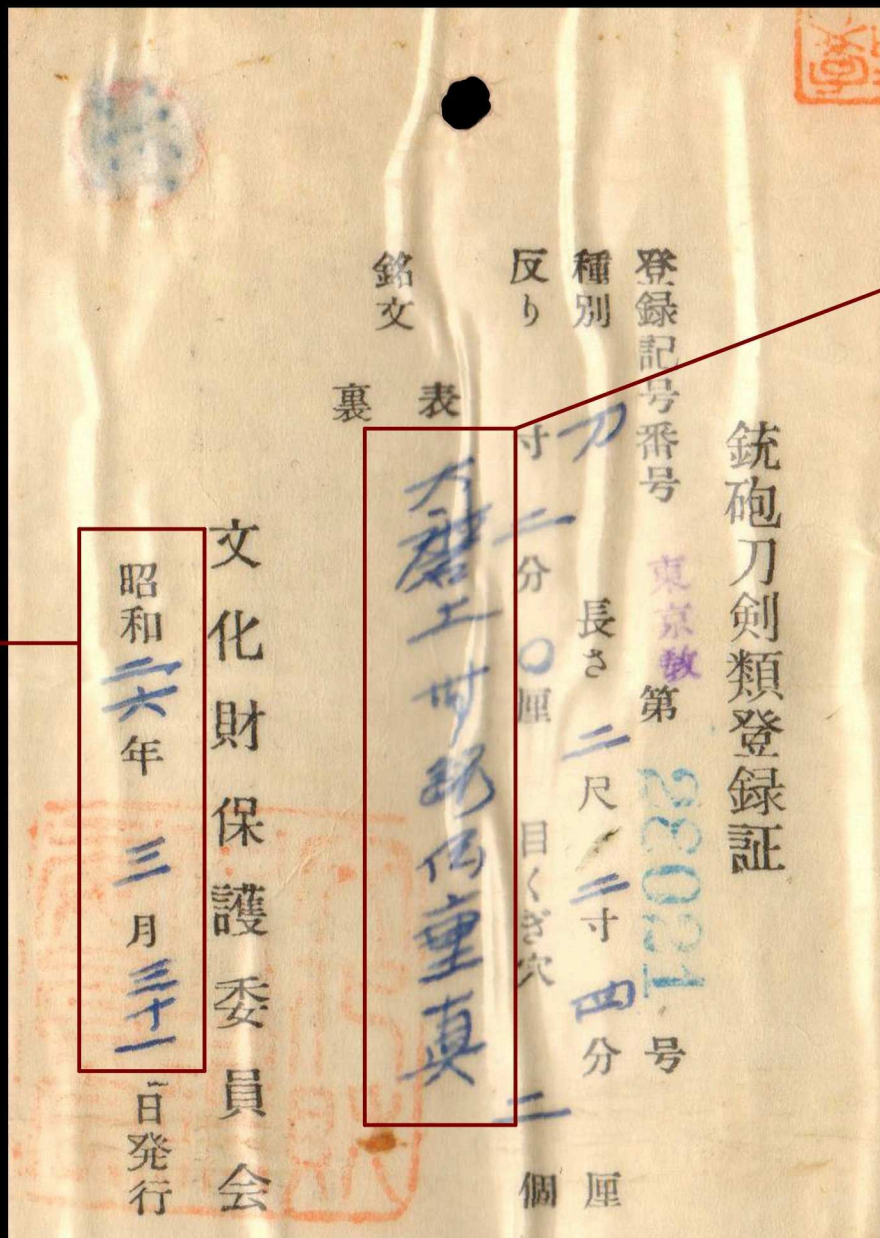 銃砲刀剣類登録証
登録記号番号 東京教 第 号
種別 刀 長さ 二尺二寸四分 厘
反り 寸二分〇厘 目くぎ穴 二個
銘文 表 大磨上無銘伝重真
裏
文化財保護委員会
昭和二六年三月三十一日発行